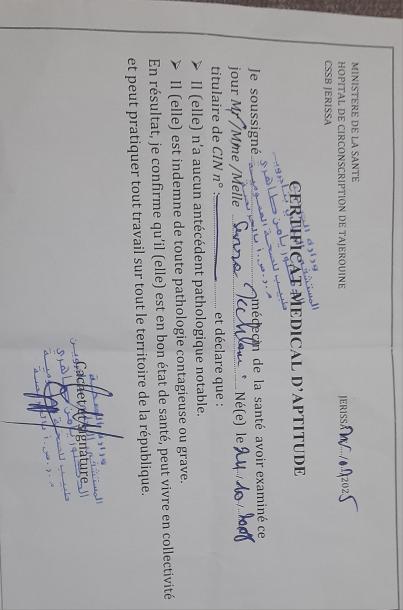 MINISTERE DE LA SANTE
HOPITAL DE CIRCONSCRIPTION DE TAJEROUINE
CSSB JERISSA
JERISSA
/2025
CERTIFICAT MEDICAL D'APTITUDE
Je soussigné médecin de la santé avoir examiné ce
jour Mr/Mme/Melle Né(e) le 24/10/
titulaire de CIN n° : et déclare que :
➤ Il (elle) n'a aucun antécédent pathologique notable.
➤ Il (elle) est indemne de toute pathologie contagieuse ou grave.
En résultat, je confirme qu'il (elle) est en bon état de santé, peut vivre en collectivité
et peut pratiquer tout travail sur tout le territoire de la république.
Cachet et signature